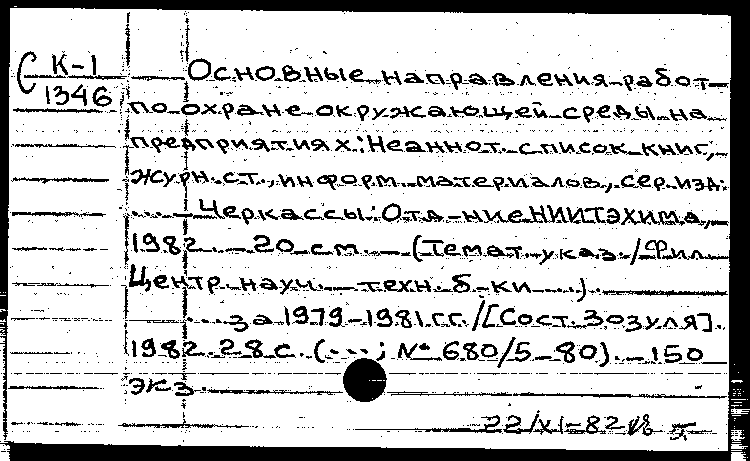 С К-1
1346
Основные направления работ
по охране окружающей среды на
предприятиях: Неаннот. список книг,
журн. ст., информ. материалов, сер. изд.
... - Черкассы: Отд-ние НИИТЭХИМа,
1982. - 20 см. - (Темат. указ. / Фил.
Центр. науч. - техн. б-ки ...).
... за 1979-1981 гг. / [Сост. Зозуля].
1982. 28 с. (...; № 680/5-80). - 150
экз.
22/XI-82